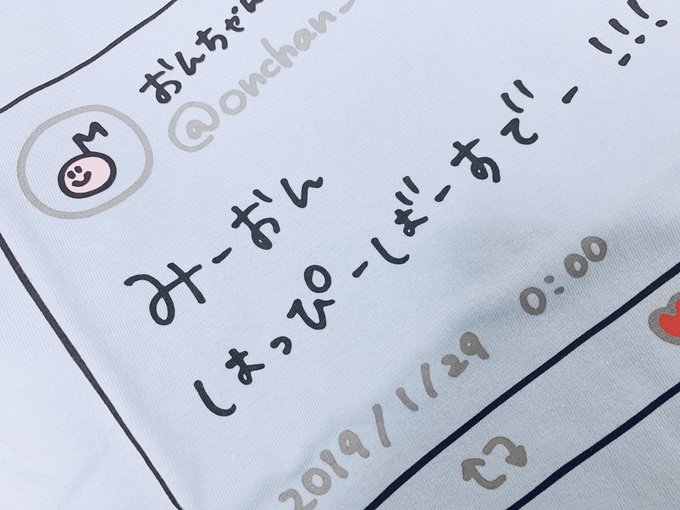 おんちゃん
@onchan_
みーおん
はっぴーばーすでー!!!
2019/1/29 0:00